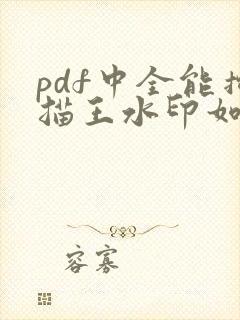 pdf中全能扫
描王水印如
容寡